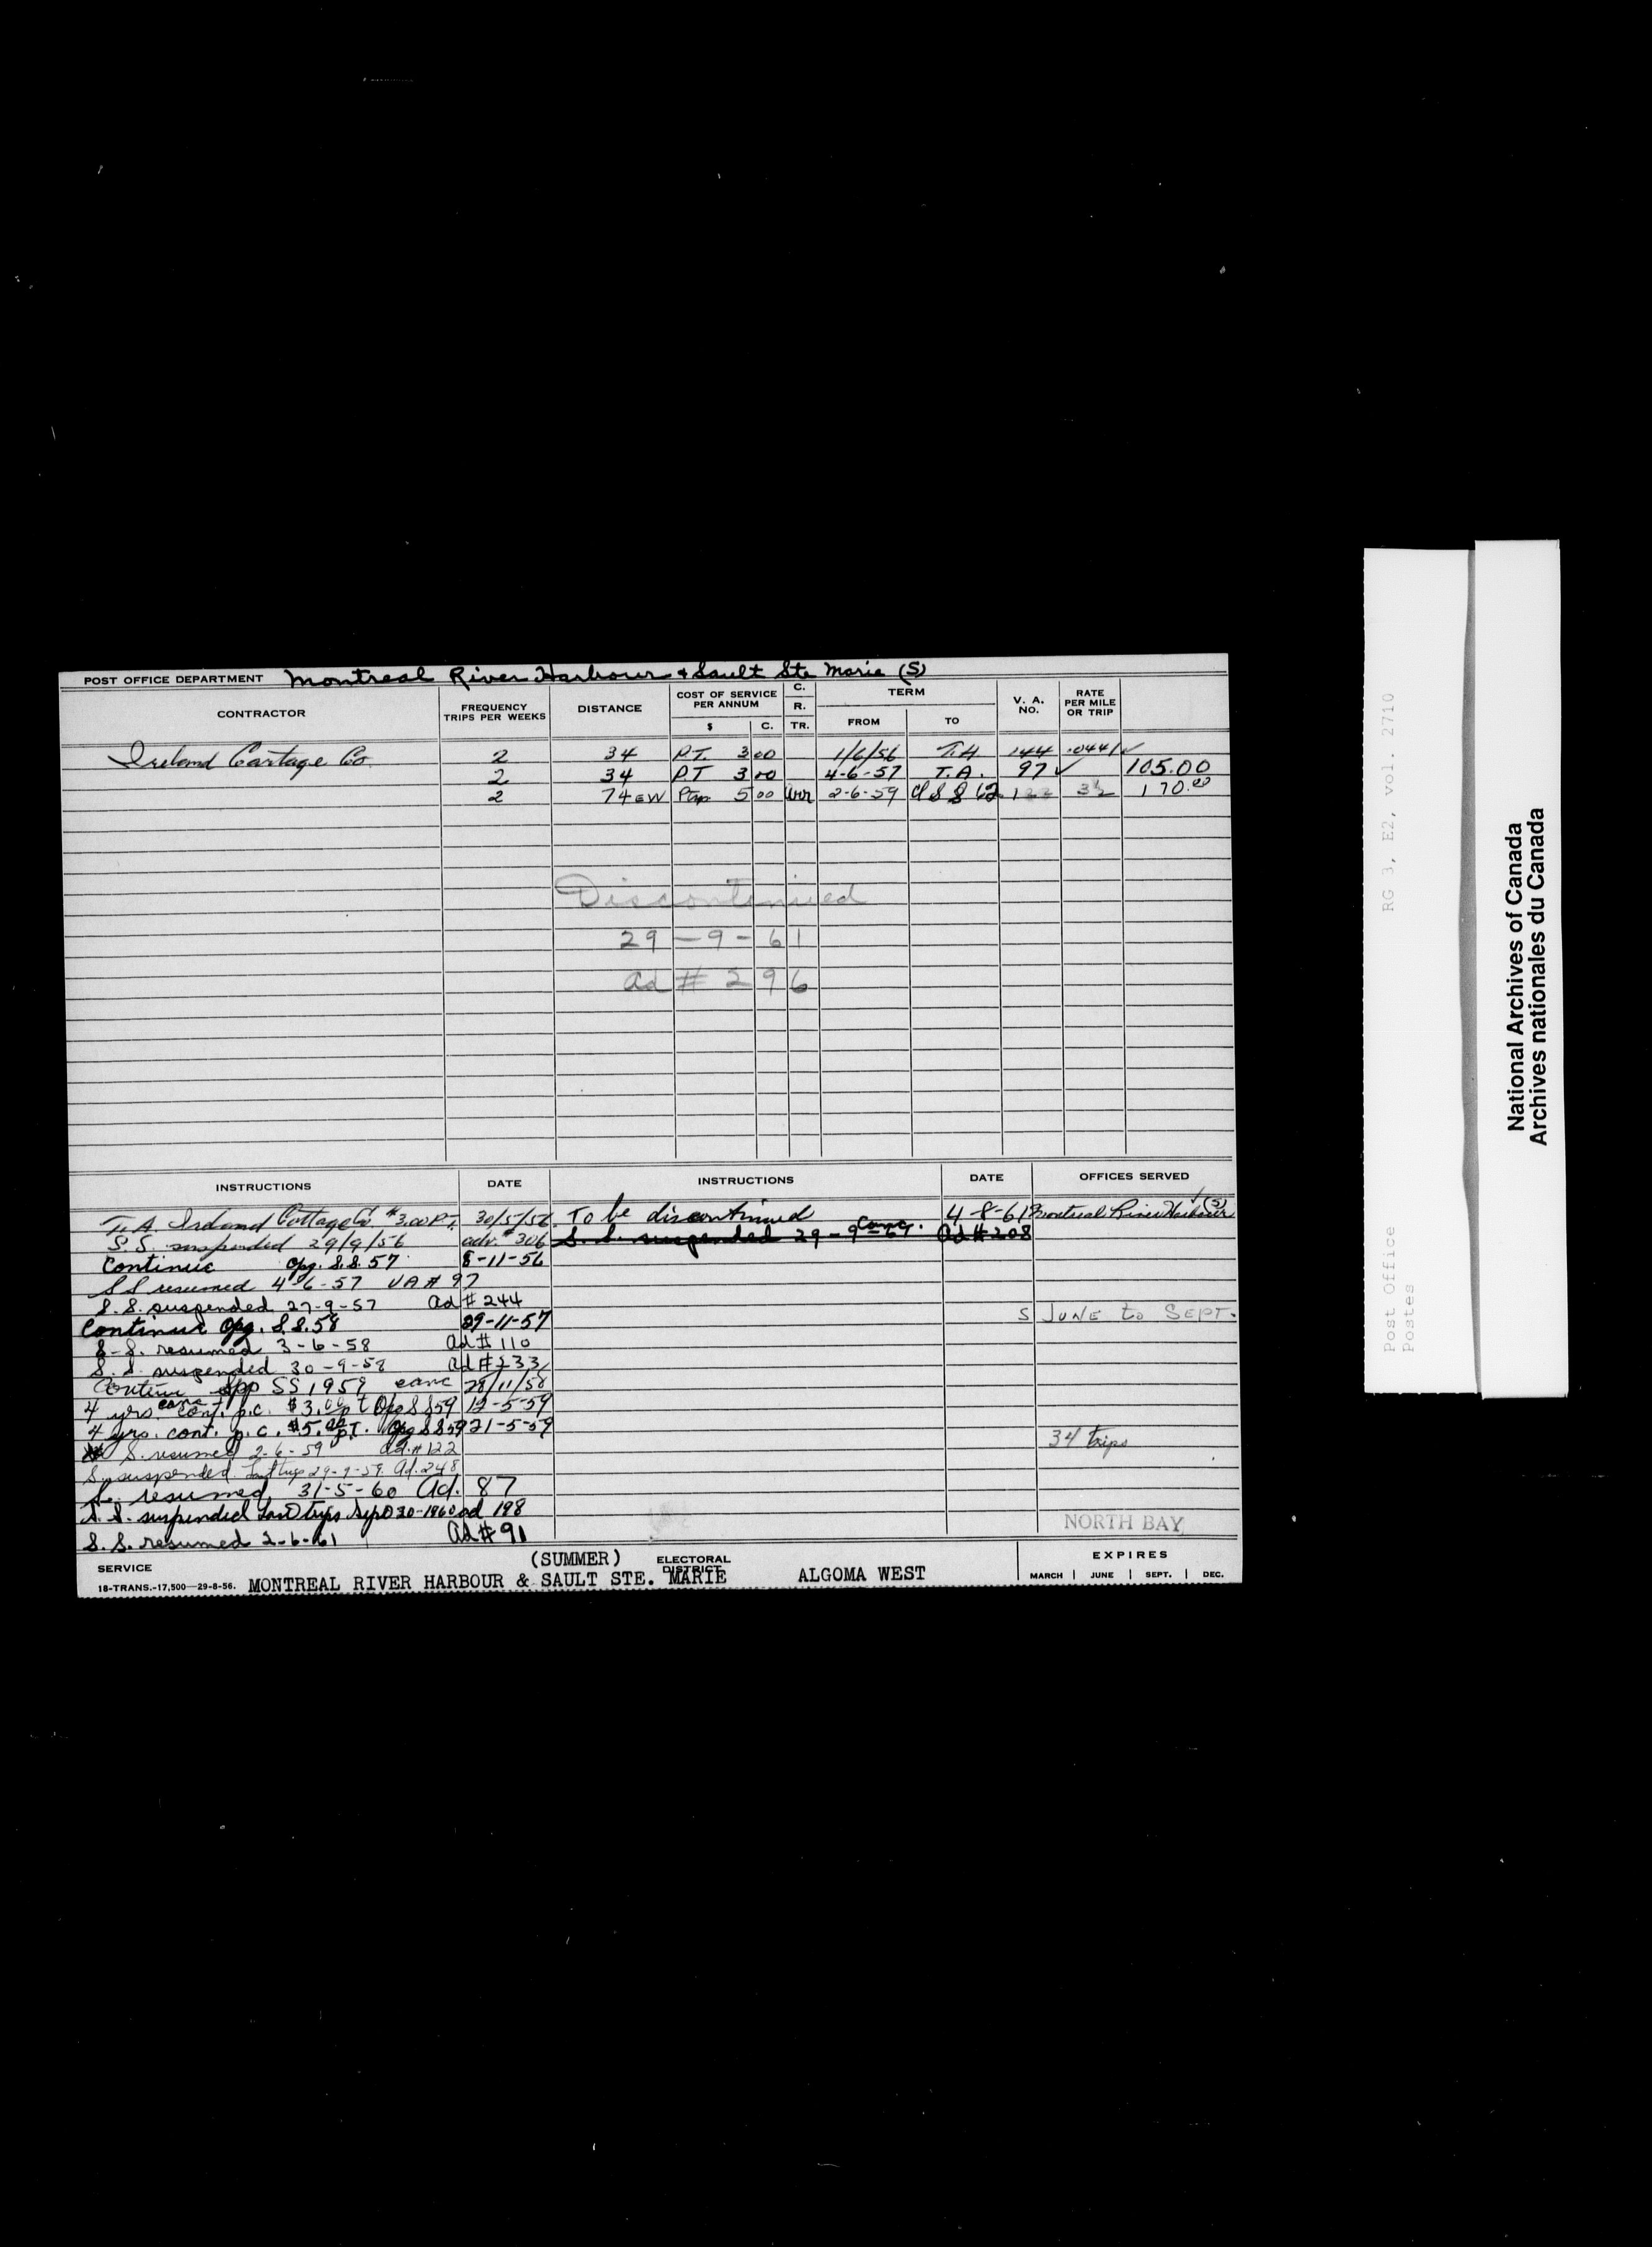 POST OFFICE DEPARTMENT Montreal River Harbour & Sault Ste Marie (S)
CONTRACTOR FREQUENCY TRIPS PER WEEKS DISTANCE COST OF SERVICE PER ANNUM $ C. C. R. TR. TERM FROM TO V. A. NO. RATE PER MILE OR TRIP
Ireland Cartage Co. 2 34 P.T. 3 00 1/6/56 T.A 144 .0441 ✓
2 34 PT 3 00 4-6-57 T.A. 97 ✓ 105.00
2 74 EW 5 00 2-6-59 S S 62 3½ 170.00
Discontinued
29-9-61
Ad # 296
INSTRUCTIONS DATE INSTRUCTIONS DATE OFFICES SERVED
T.A. Ireland Cottage Co. $3.00 P.T. 30/5/56 To be discontinued 4-8-61 Montreal River Harbour (S)
S.S. suspended 29/9/56 adv. # 306 S. S. suspended 29-9-61 canc. Ad # 208
Continue Opg. S.S. 57 8-11-56
S S resumed 4-6-57 VA # 97
S.S. suspended 27-9-57 Ad # 244
S JUNE to SEPT.
Continue Opg. S.S. 58 29-11-57
S-S. resumed 3-6-58 Ad # 110
S.S. suspended 30-9-58 Ad # 233
Continue Opp SS 1959 canc 28/11/58
4 yrs. cont. p.c. $3.00 p t Opg S S 59 canc 12-5-59
4 yrs. cont. p.c. $5.00 p.T. Opg S S 59 21-5-59
34 trips
S. resumed 2-6-59 Ad. # 122
S. suspended. Last trip 29-9-59. Ad. 248
S. resumed 31-5-60 Ad. 87
S. S. suspended Last trips Sept 30-1960 ad 198
NORTH BAY
S. S. resumed 2-6-61 Ad # 91
SERVICE (SUMMER) ELECTORAL DISTRICT EXPIRES
18-TRANS.-17,500—29-8-56. MONTREAL RIVER HARBOUR & SAULT STE. MARIE ALGOMA WEST MARCH | JUNE | SEPT. | DEC.
RG 3, E2, vol. 2710
Post Office
Postes
National Archives of Canada
Archives nationales du Canada